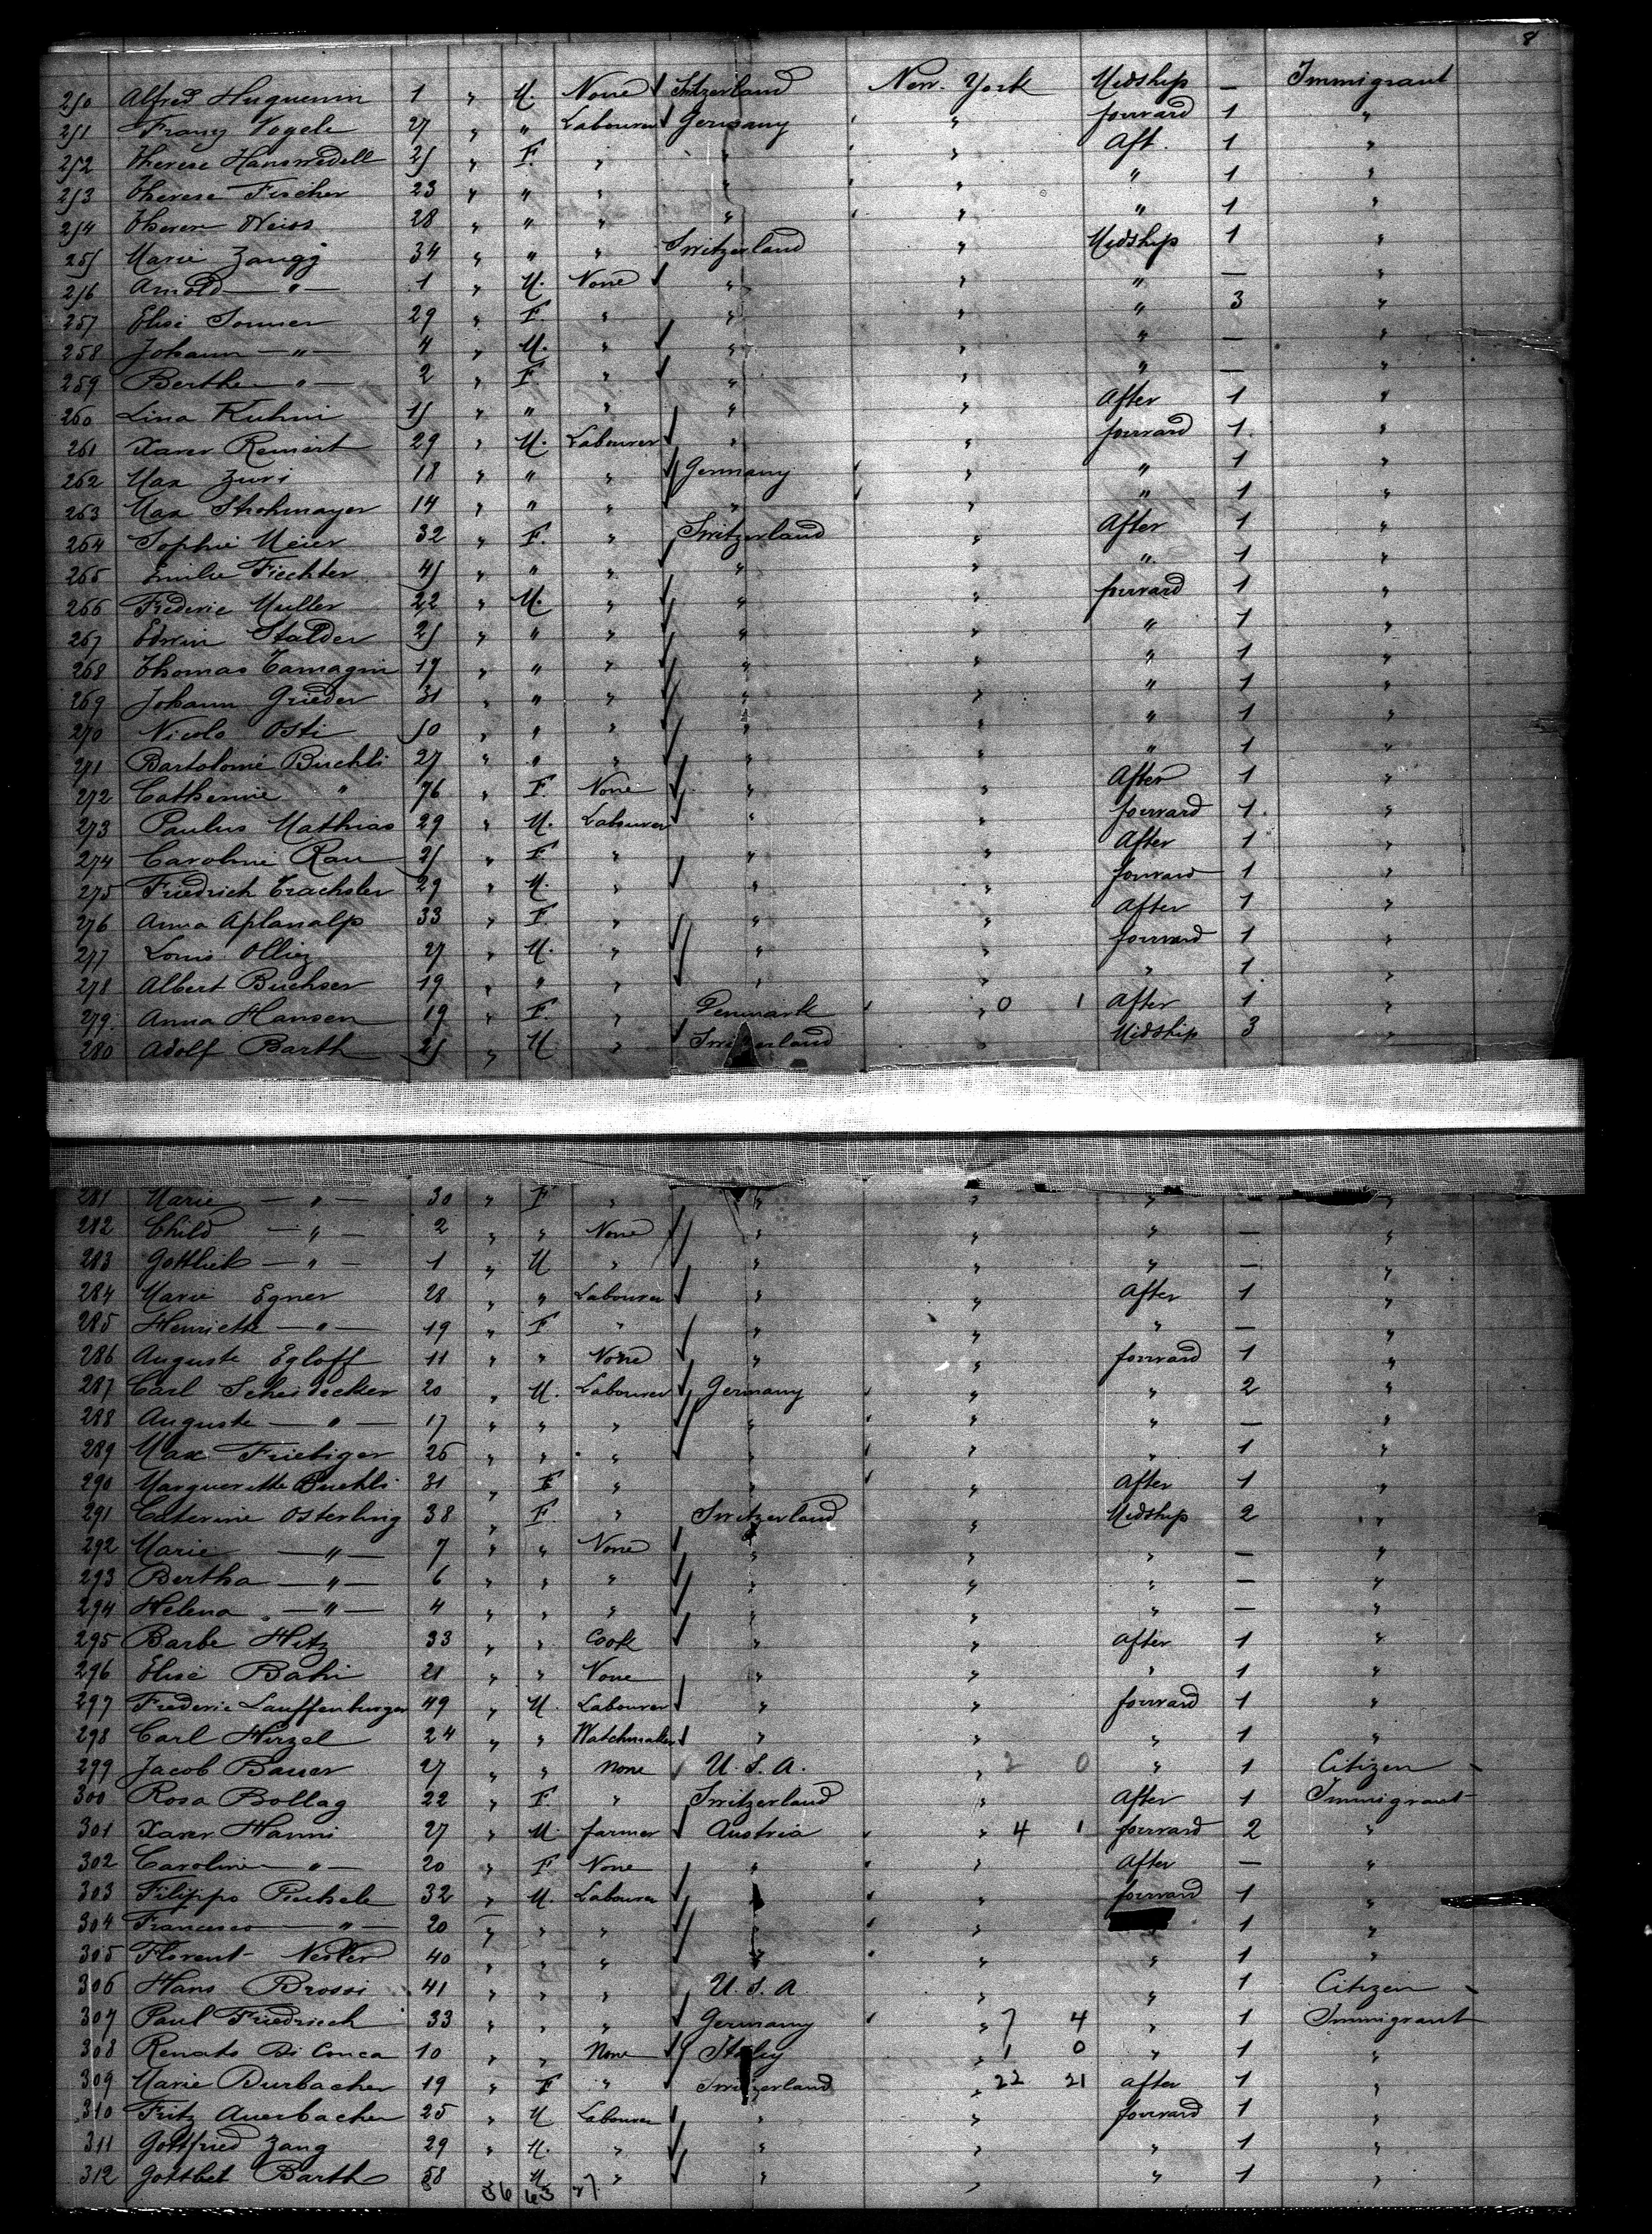 8
250 Alfred Huguenin 1 " M. None Switzerland New. York Midship — Immigrant
251 Franz Vogele 27 " " Labourer Germany " forward 1 "
252 Therese Hanswedell 25 " F. " " " Aft. 1 "
253 Therese Fischer 23 " " " " " " 1 "
254 Therese Weiss 28 " " " " " " 1 "
255 Marie Zaugg 34 " " " Switzerland " Midship 1 "
256 Arnold —"— 1 " M. None " " " — "
257 Elise Sommer 29 " F. " " " " 3 "
258 Johann —"— 4 " M. " " " " — "
259 Berthe —"— 2 " F. " " " " — "
260 Lina Kuhni 15 " " " " " After 1 "
261 Xaver Remert 29 " M. Labourer " " forward 1 "
262 Max Zuri 18 " " " Germany " " 1 "
263 Max Strohmayer 14 " " " " " " 1 "
264 Sophie Meier 32 " F. " Switzerland " After 1 "
265 Emilie Fiechter 45 " " " " " " 1 "
266 Frederic Muller 22 " M. " " " forward 1 "
267 Edwin Stalder 25 " " " " " " 1 "
268 Thomas Tamagni 17 " " " " " " 1 "
269 Johann Grieder 31 " " " " " " 1 "
270 Nicolo Osti 50 " " " " " " 1 "
271 Bartolome Buchli 27 " " " " " " 1 "
272 Catherine " 76 " F. None " " After 1 "
273 Paulus Mathias 29 " M. Labourer " " forward 1 "
274 Caroline Rau 25 " F. " " " After 1 "
275 Friedrich Trachsler 29 " M. " " " forward 1 "
276 Anna Aplanalp 33 " F. " " " After 1 "
277 Louis Olliez 27 " M. " " " forward 1 "
278 Albert Buchser 19 " " " " " " 1 "
279 Anna Hansen 19 " F. " Denmark " 0 1 After 1 "
280 Adolf Barth 25 " M " Switzerland " Midship 3 "
281 Marie —"— 30 " F " " " " "
282 Child —"— 2 " " None " " " — "
283 Gottlieb —"— 1 " M " " " " — "
284 Marie Egner 28 " " Labourer " " After 1 "
285 Henriette —"— 19 " F " " " " — "
286 Auguste Egloff 11 " " None " " forward 1 "
287 Carl Scheidecker 20 " M. Labourer Germany " " 2 "
288 Auguste —"— 17 " " " " " " — "
289 Max Friebiger 26 " " " " " " 1 "
290 Marguerithe Buchli 31 " F " " " After 1 "
291 Caterine Osterling 38 " F. " Switzerland " Midship 2 "
292 Marie —"— 7 " " None " " " — "
293 Bertha —"— 6 " " " " " " — "
294 Helena —"— 4 " " " " " " — "
295 Barbe Hitz 33 " " Cook " " After 1 "
296 Elise Bahi 21 " " None " " " 1 "
297 Frederic Lauffenburger 49 " M. Labourer " " forward 1 "
298 Carl Hirzel 24 " " Watchmaker " " " 1 "
299 Jacob Bauer 27 " " None U. S. A. " 2 0 " 1 Citizen
300 Rosa Bollag 22 " F. " Switzerland " After 1 Immigrant
301 Xaver Hanni 27 " M. farmer Austria " 4 1 forward 2 "
302 Caroline —"— 20 " F None " " After — "
303 Filippo Pichele 32 " M. Labourer " " forward 1 "
304 Francesco —"— 20 " " " " " 1 "
305 Florent Nesler 40 " " " " " " 1 "
306 Hans Brossi 41 " " " U. S. A " " 1 Citizen
307 Paul Friedrich 33 " " " Germany " 7 4 " 1 Immigrant
308 Renato Di Conca 10 " " None Italy " 1 0 " 1 "
309 Marie Durbacher 19 " F " Switzerland " 22 21 after 1 "
310 Fritz Auerbacher 25 " M Labourer " " forward 1 "
311 Gottfried Zang 29 " M. " " " " 1 "
312 Gottlieb Barth 58 " M " " " " 1 "
36 63 27